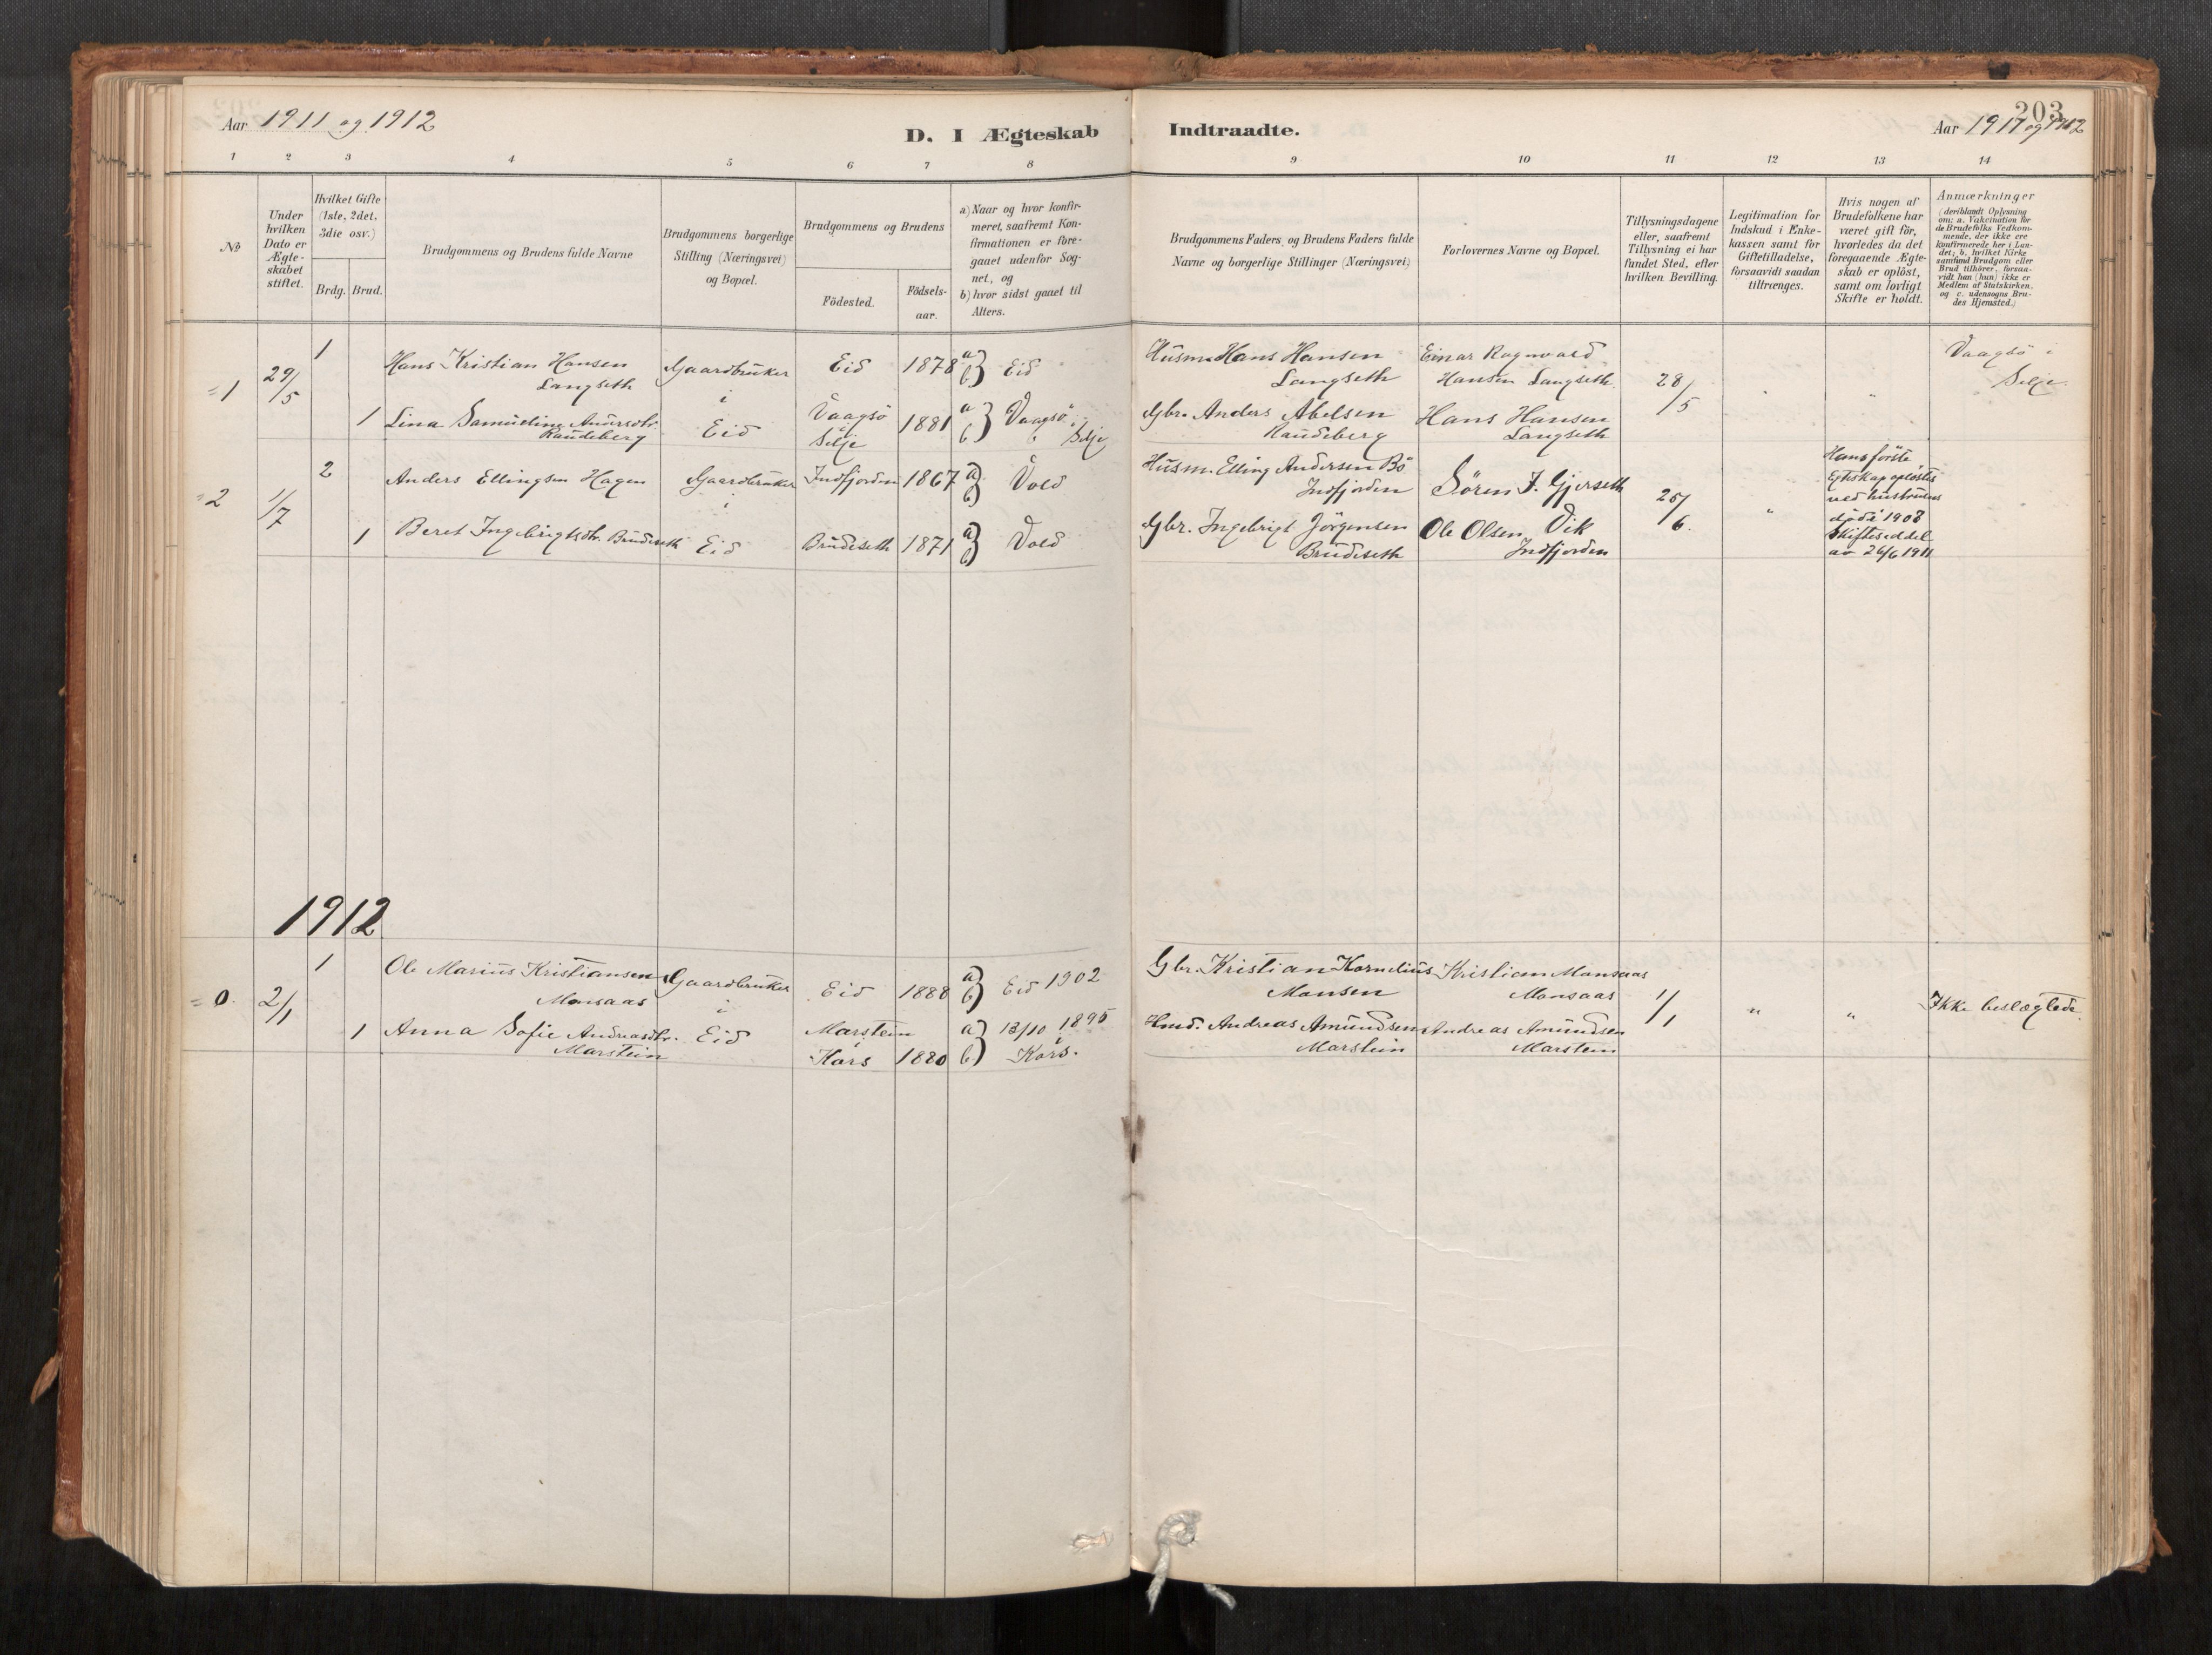 Aar 1911 og 1912
D. I Ægteskab Indtraadte.
203
Aar 1911 og 1912
1 2 3 4 5 6 7 8 9 10 11 12 13 14
No
Under
hvilken
Dato er
Ægte-
skabet
stiftet.
Hvilket Gifte
(1ste, 2det,
3die osv.)
Brdg. Brud.
Brudgommens og Brudens fulde Navne
Brudgommens borgerlige
Stilling (Næringsvei)
og Bopæl.
Brudgommens og Brudens
Födested.
Födsels-
aar.
a) Naar og hvor konfir-
meret, saafremt Kon-
firmationen er fore-
gaaet udenfor Sog-
net, og
b) hvor sidst gaaet til
Alters.
Brudgommens Faders, og Brudens Faders fulde
Navne og borgerlige Stillinger (Næringsvei)
Forlovernes Navne og Bopæl.
Tillysningsdagene
eller, saafremt
Tillysning ei har
fundet Sted, efter
hvilken Bevilling.
Legitimation for
Indskud i Enke-
kassen samt for
Giftetilladelse,
forsaavidt saadan
tiltrænges.
Hvis nogen af
Brudefolkene har
været gift för,
hvorledes da det
foregaaende Ægte-
skab er oplöst,
samt om lovligt
Skifte er holdt.
Anmærkninger
(deriblandt Oplysning
om: a. Vakcination for
de Brudefolks Vedkom-
mende, der ikke ere
konfirmerede her i Lan-
det; b. hvilket Kirke
samfund Brudgom eller
Brud tilhörer, forsaa-
vidt han (hun) ikke er
Medlem af Statskirken,
og c. udensogns Bru-
des Hjemsted.)
=1 29/5 1 Hans Kristian Hansen Gaardbruker Eid 1878 a b) Eid Husm. Hans Hansen Einar Ragnvald 28/5 " " Vaagsö i
Langseth i Langseth Hansen Langseth Selje.
1 Lina Samueline Andersdtr. Eid Vaagsö 1881 a b) Vaagsö i Gbr. Anders Abelsen Hans Hansen
Raudeberg i Selje Selje Raudeberg Langseth
=2 1/7 2 Anders Ellingsen Hagen Gaardbruker Indfjorden 1867 a b) Vold Husm. Elling Andersen Bö Sören J. Gjerseth 25/6. " Hans förste
i Indfjorden Egteskap oplöstes
ved hustruens
1 Beret Ingebrigtsdtr. Brudeseth Eid Brudeseth 1871 a b) Vold Gbr. Ingebrigt Jörgensen Ole Olsen Vik död i 1908
Brudeseth Indfjorden Skifteseddel
av 26/6 1911
1912
=0. 2/1 1 Ole Marius Kristiansen Gaardbruker Eid 1888 a b) Eid 1902 Gbr. Kristian Kornelius Kristian Monsaas 1/1 " " Ikke beslægtede.
Monsaas i Monsen Monsaas
1 Anna Sofie Andreasdtr. Eid Marstein a) 13/10 1895 Hmd. Andreas Amundsen Andreas Amundsen
Marstein Kors 1880 b) Kors. Marstein Marstein